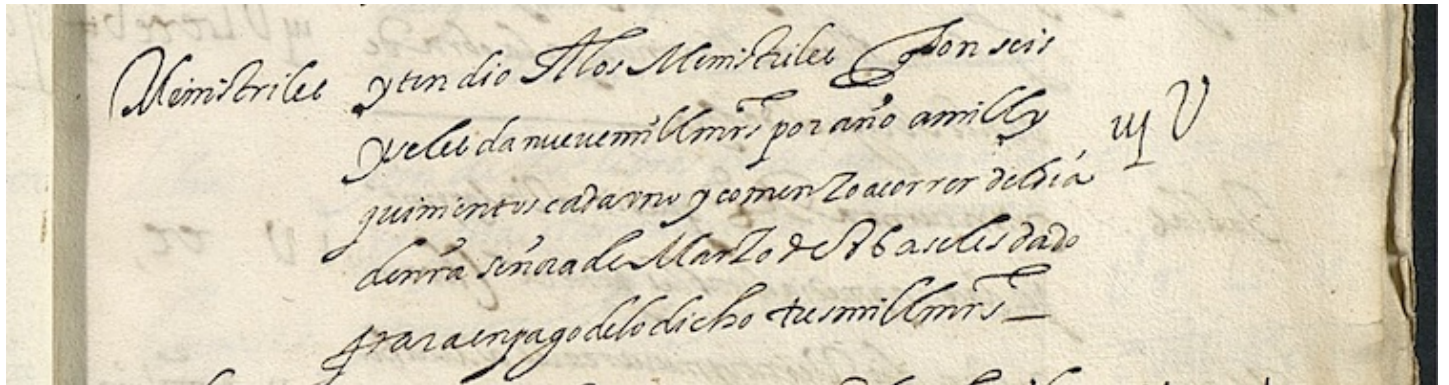 Ministriles yten dio A los Ministriles Que son seis
y seles da nueve mill mrs por año a mill y
quinientos cada uno y comenzo a correr del dia
de nra señora de Marzo de aseles dado
para en pago de lo dicho tres mill mrs
iij U